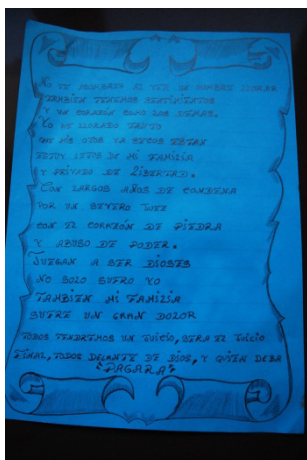 NO TE ASOMBRES AL VER UN HOMBRE LLORAR
TAMBIEN TENEMOS SENTIMIENTOS
Y UN CORAZON COMO LOS DEMAS.
YO HE LLORADO TANTO
QUE MIS OJOS YA SECOS ESTAN
ESTOY LEJOS DE MI FAMILIA
Y PRIVADO DE LIBERTAD.
CON LARGOS AÑOS DE CONDENA
POR UN SEVERO JUEZ
CON EL CORAZÓN DE PIEDRA
Y ABUSO DE PODER.
JUEGAN A SER DIOSES
NO SOLO SUFRO YO
TAMBIEN MI FAMILIA
SUFRE UN GRAN DOLOR
TODOS TENDREMOS UN JUICIO, SERA EL JUICIO
FINAL, TODOS DELANTE DE DIOS, Y QUIEN DEBA
"PAGARA"